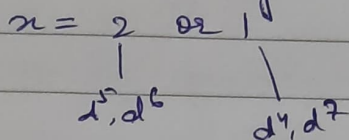 x = 2 or 1
d⁵, d⁶
d⁴, d⁷